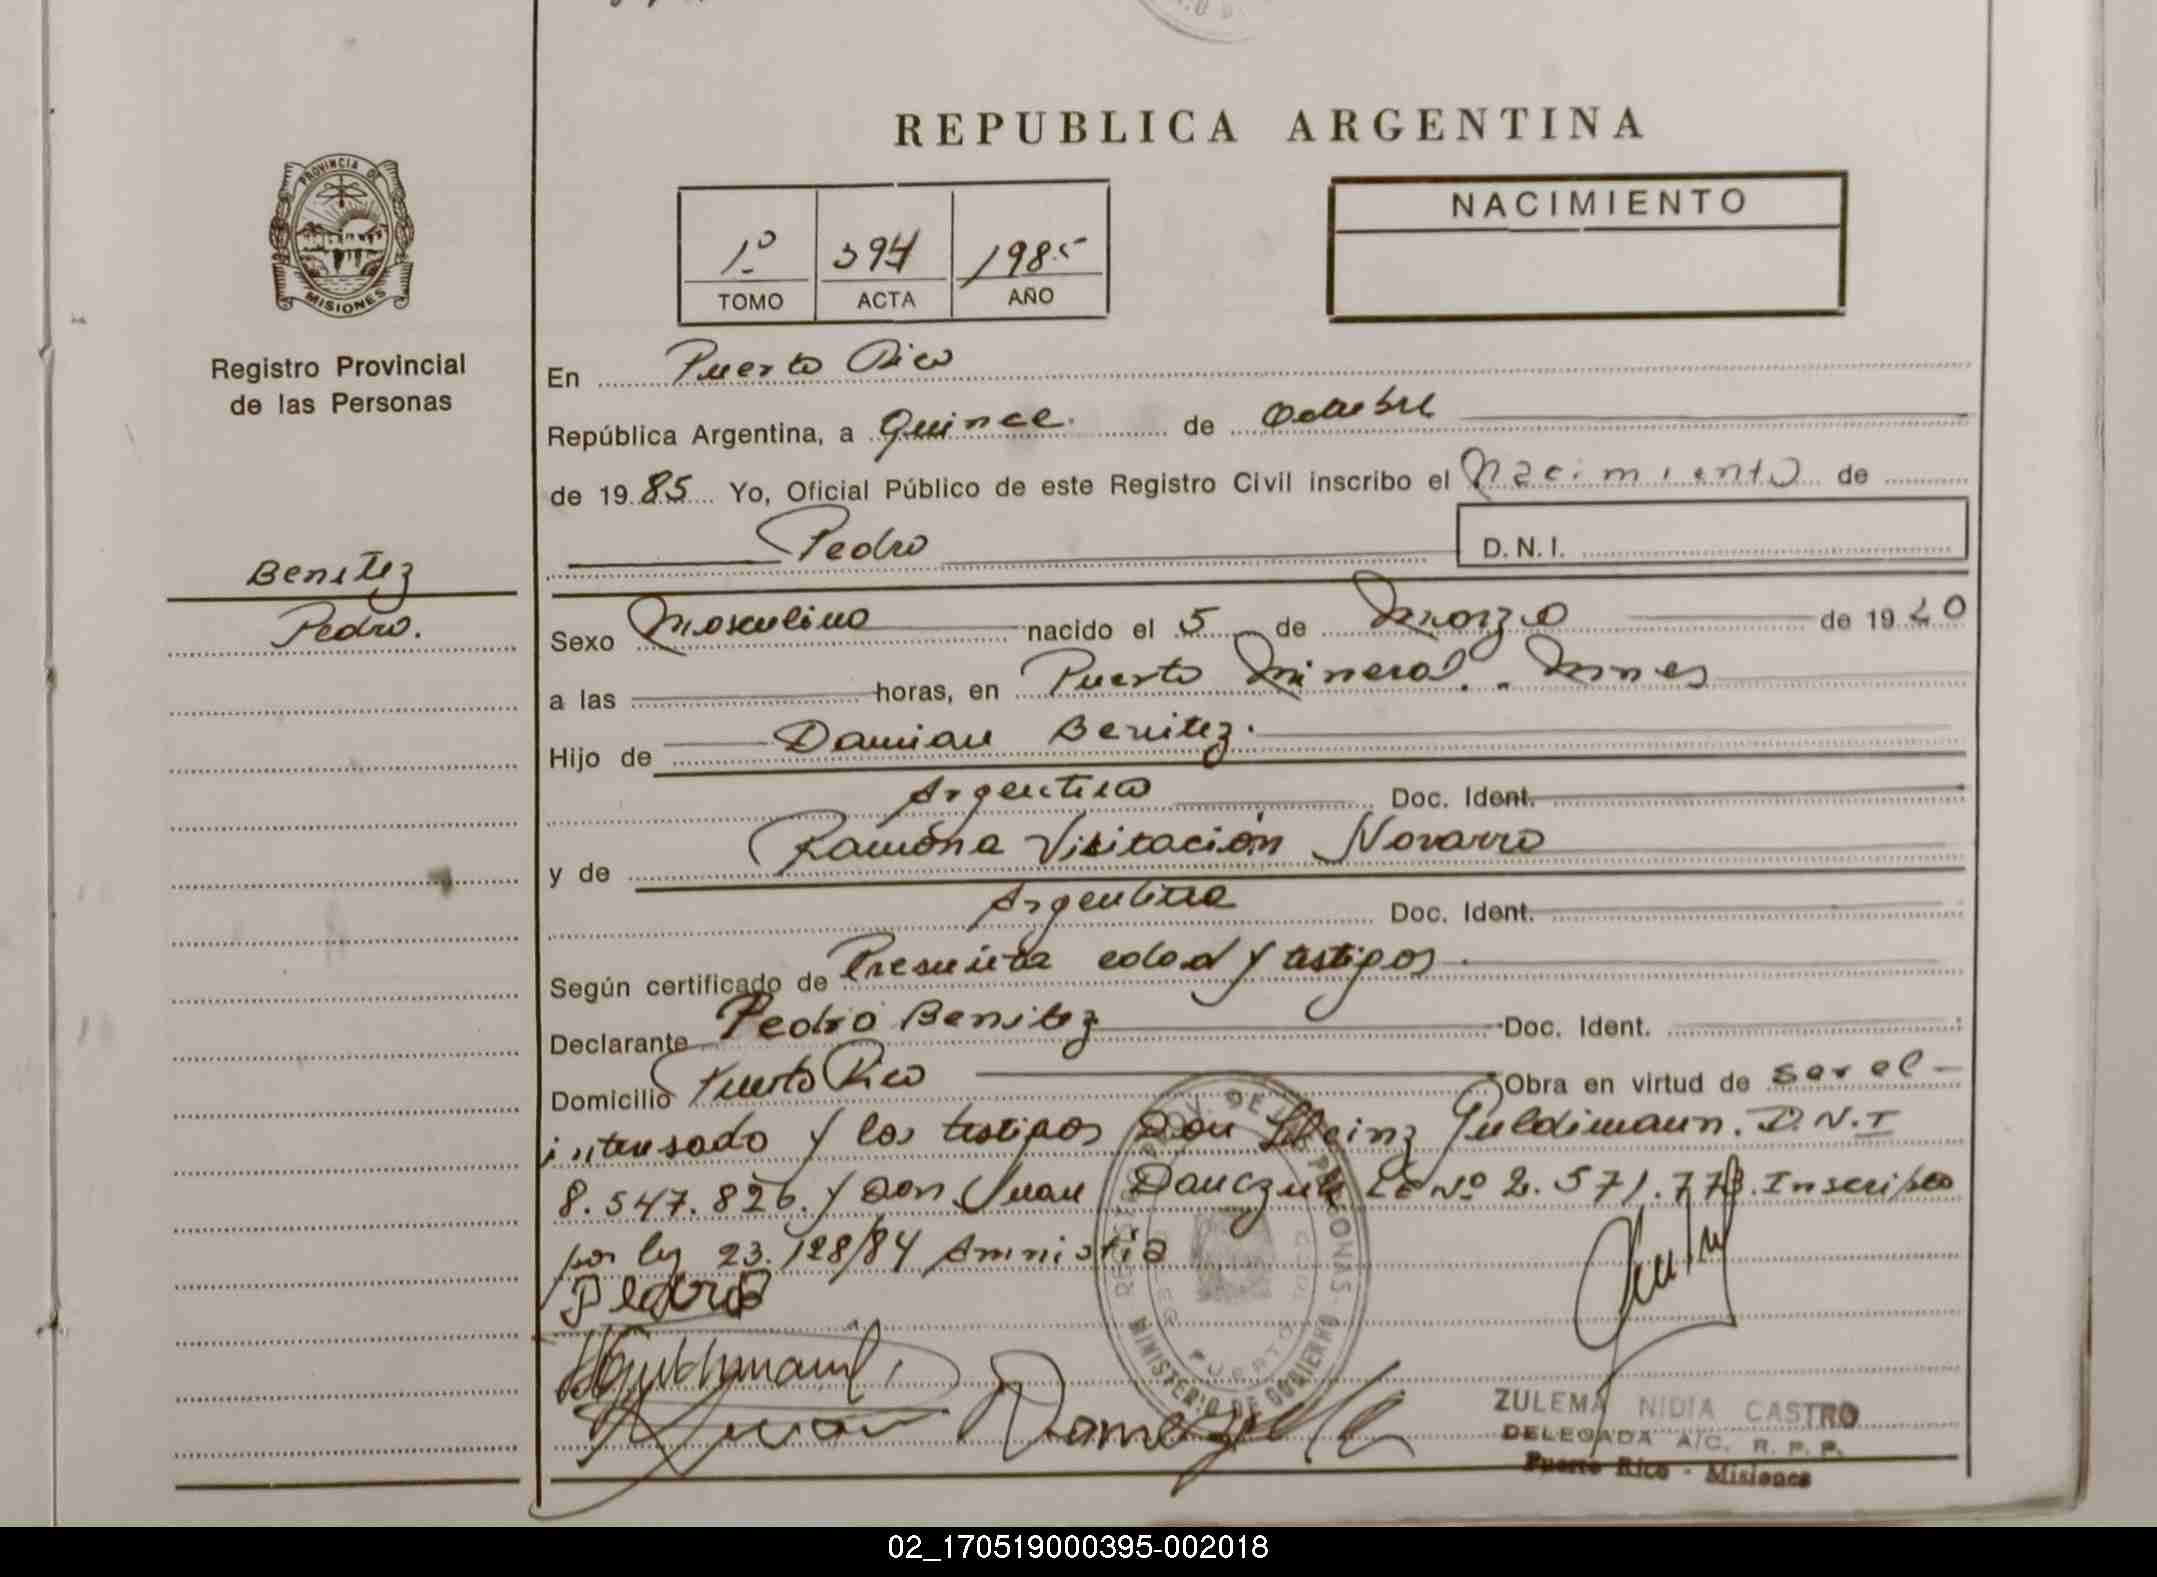 REPUBLICA ARGENTINA
PROVINCIA DE
MISIONES
Registro Provincial
de las Personas
1º 394 1985
TOMO ACTA AÑO
NACIMIENTO
En Puerto Rico
República Argentina, a Quince de Octubre
de 1985 Yo, Oficial Público de este Registro Civil inscribo el Nacimiento de
Pedro D.N.I.
Benitez
Pedro.
Sexo Masculino nacido el 5 de Marzo de 19
a las horas, en Puerto Mineral. Mnes
Hijo de Damian Benitez.
Argentino Doc. Ident.
y de Ramona Visitación Navarro
Argentina Doc. Ident.
Según certificado de Presunta edad y testigos.
Declarante Pedro Benitez Doc. Ident.
Domicilio Puerto Rico Obra en virtud de ser el
intersado y los testigos Don Heinz Guldimann. D.N.I
8.547.826. y Don Juan LE Nº 2.571.773. Inscripto
por ley 23.128/84 Amnistia
Pedro B
Juan
MINISTERIO DE GOBIERNO
ZULEMA NIDIA CASTRO
DELEGADA A/C. R. P. P.
Puerto Rico - Misiones
02_170519000395-002018